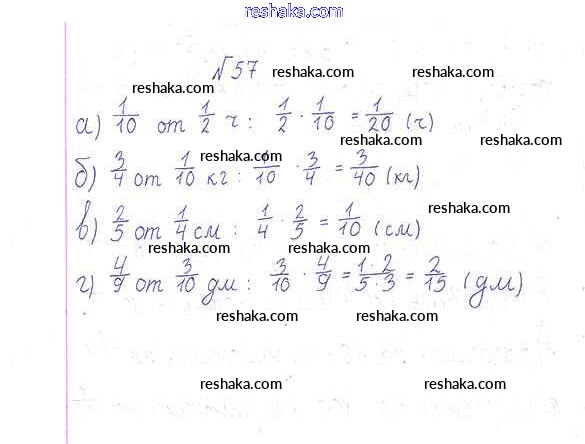 reshaka.com
№57 reshaka.com reshaka.com
reshaka.com
а) 1/10 от 1/2 ч : 1/2 · 1/10 = 1/20 (ч)
reshaka.com reshaka.com
reshaka.com
б) 3/4 от 1/10 кг : 1/10 · 3/4 = 3/40 (кг)
reshaka.com
в) 2/5 от 1/4 см : 1/4 · 2/5 = 1/10 (см)
reshaka.com reshaka.com
г) 4/9 от 3/10 дм : 3/10 · 4/9 = 1·2/5·3 = 2/15 (дм)
reshaka.com reshaka.com
reshaka.com reshaka.com